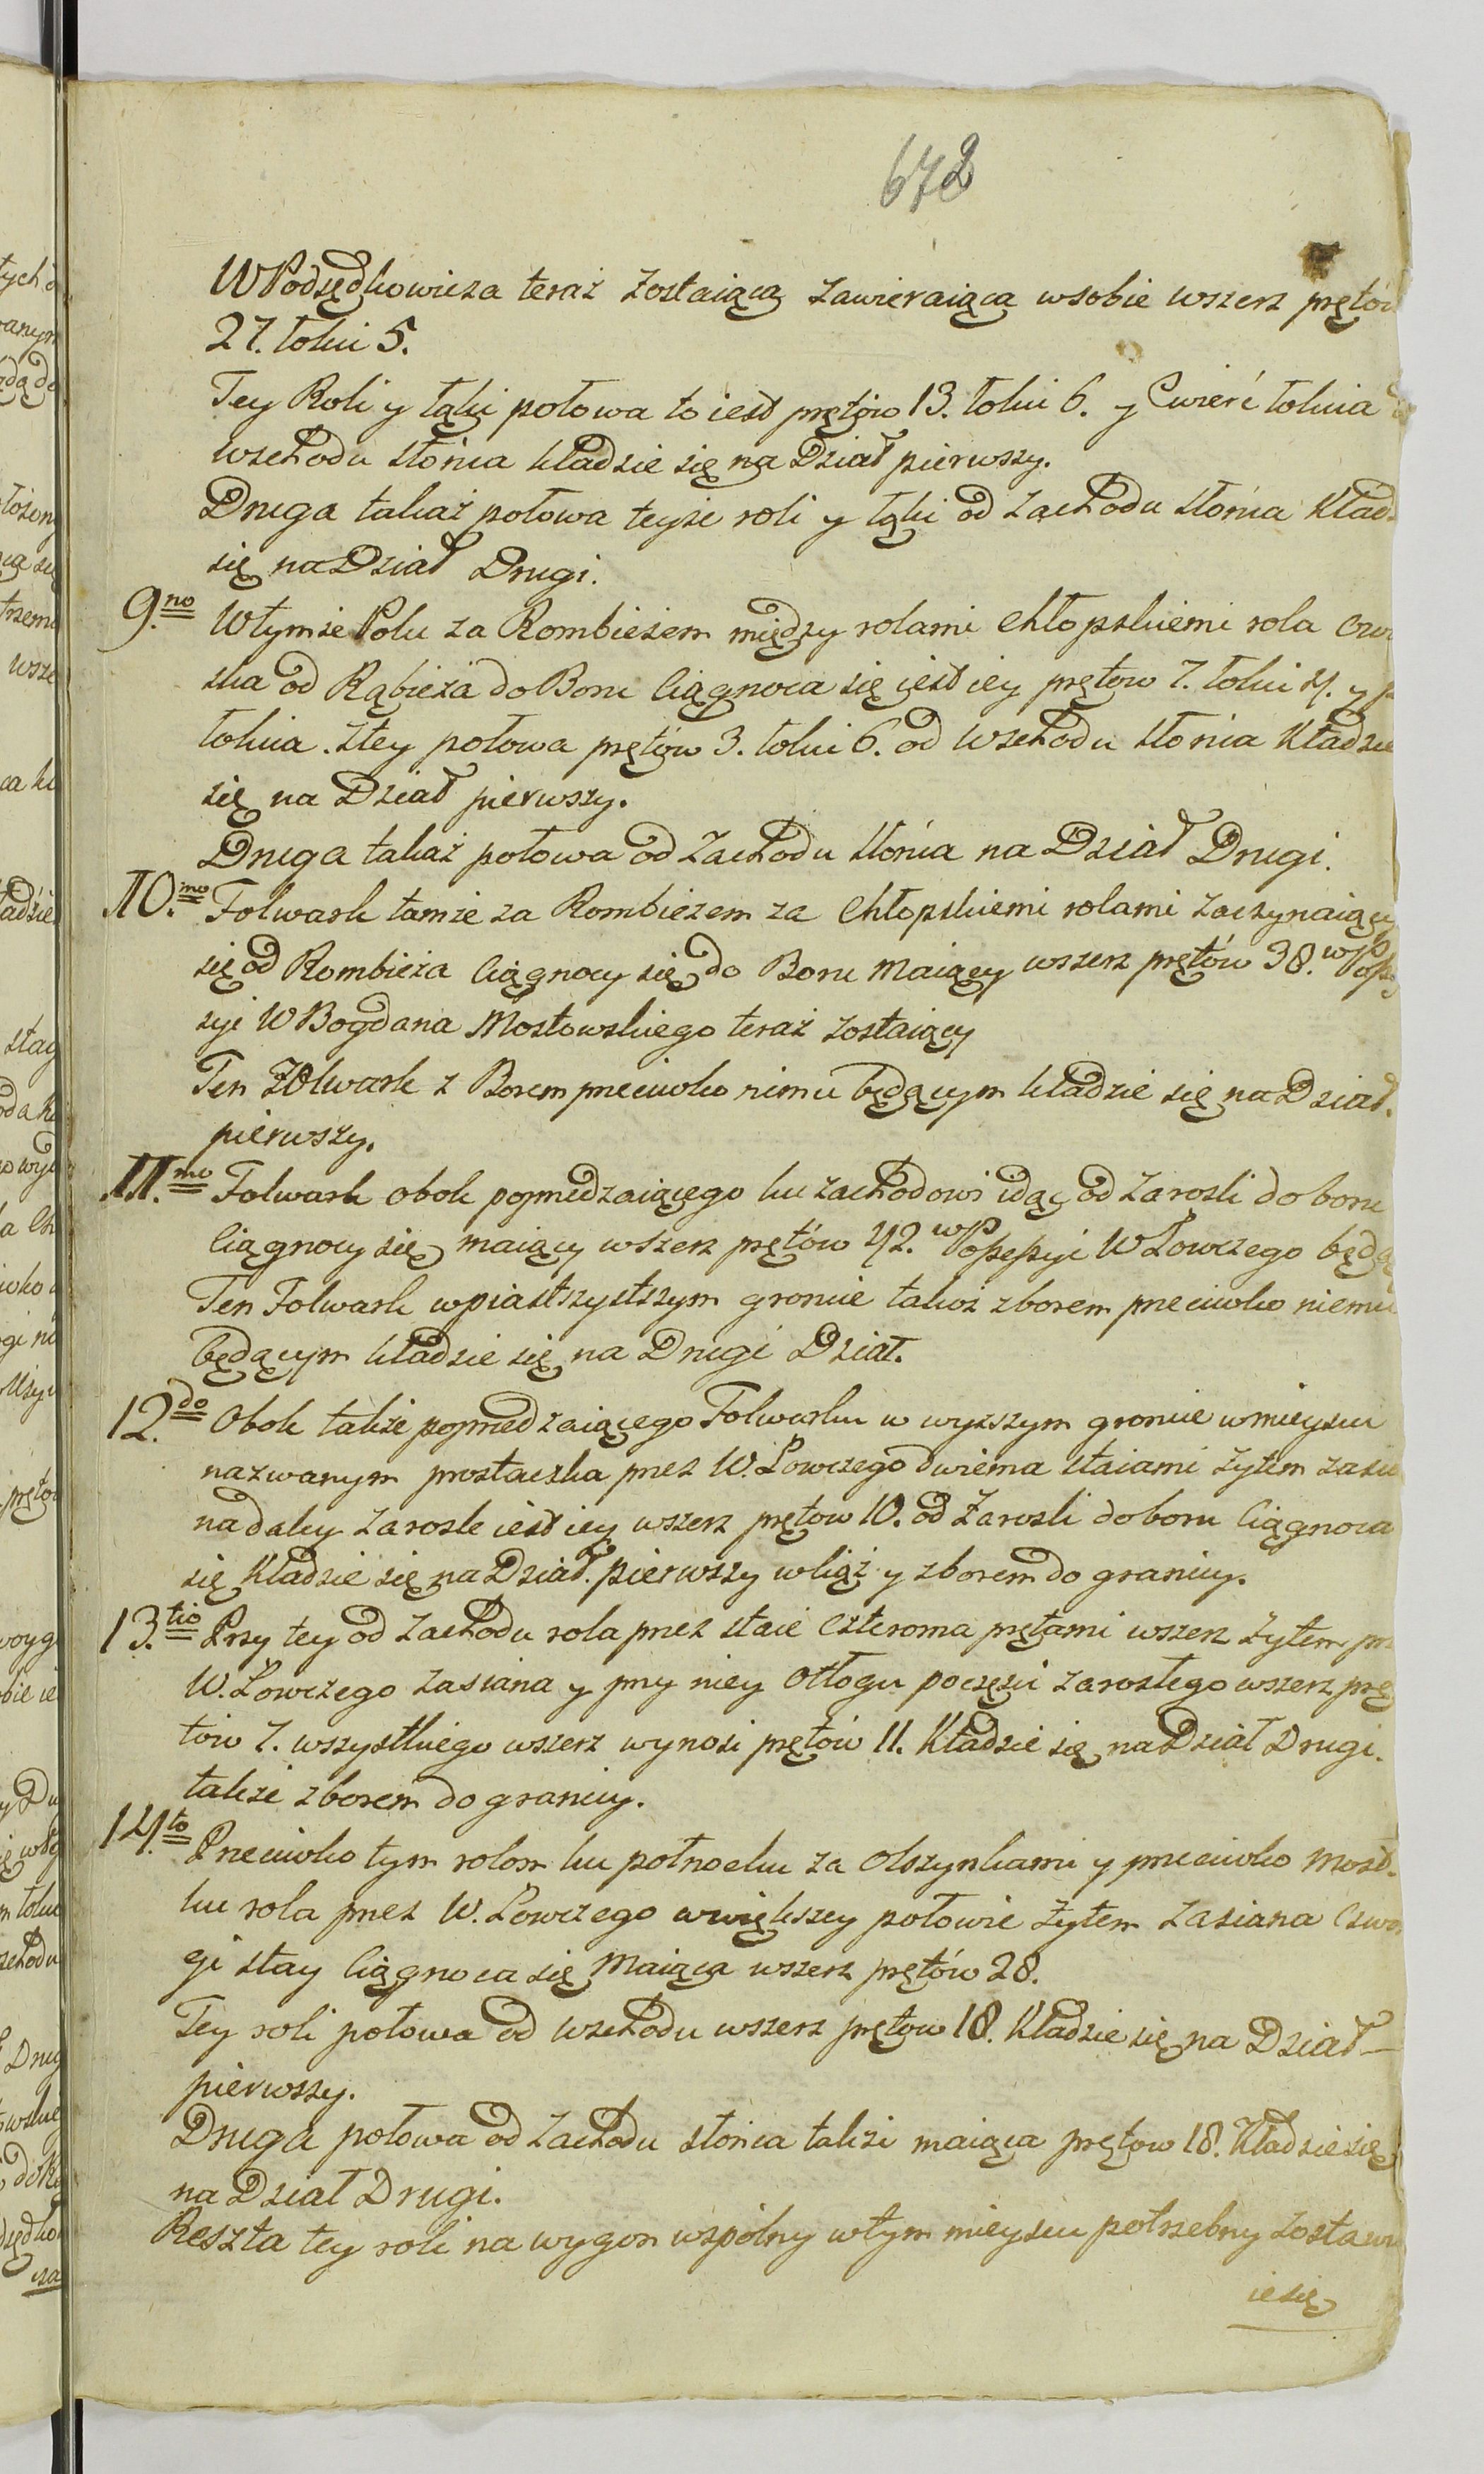 672
WPodsędkowicza teraz zostaiąca zawieraiąca wsobie wszerz prętów
27. łokci 5.
Tey Roli y łąki połowa to iest prętów 13. łokci 6. y Cwierć łokcia
wschodu słońca kładzie się na Dział pierwszy.
Druga takaż połowa teyże roli y łąki od zachodu słońca Kład.
się na Dział Drugi.
9.no Wtymże Polu za Rombieżem między rolami chłopskiemi rola
ska od Rąbieża do Boru Ciągnoca się iest iey prętow 7. łokci 4. y
łokcia. ztey połowa prętów 3. łokci 6. od wschodu słońca Kładzie
się na Dział pierwszy.
Druga takaż połowa od zachodu słońca na Dział Drugi.
10.mo Folwark tamże za Rombieżem za Chłopskiemi rolami zaczynaiący
się od Rombieża Ciągnocy się do Boru Maiący wszerz prętów 38.
syi W Bogdana Mostowskiego teraz zostaiący
Ten Folwark z Borem przeciwko niemu będącym kładzie się na Dział.
pierwszy.
11.mo Folwark obok poprzedzaiącego ku zachodowi idąc od zarośli do boru
Ciągnocy się maiący wszerz prętów 42. w Possessyi W Łowczego
Ten Folwark wpiaszczystszym groncie takoż zborem przeciwko niemu
będącym kładzie się na Drugi Dział.
12.do Obok także poprzedzaiącego Folwarku w wyższym groncie wmieyscu
nazwanym prostaczka przez W. Łowczego dwiema staiami żytem
na daley zarosłe iest iey wszerz prętow 10. od Zarośli do boru Ciągnoca
się Kładzie się na Dział. pierwszy wciąż y zborem do granicy.
13.tio Przy tey od zachodu rola przez staie czteroma prętami wszerz żytem
W. Łowczego zasiana y przy niey Odłogu poczęści zarosłego wszerz prę
tów 7. wszystkiego wszerz wynosi prętów 11. Kładzie się na Dział Drugi.
także zborem do granicy.
14.to Przeciwko tym rolom ku północku za Olszynkami y przeciwko Most.
ku rola przez W. Łowczego wwiększey połowie żytem zasiana
gi stay Ciągnoca się Maiąca wszerz prętów 28.
Tey roli połowa od wschodu wszerz prętow 18. Kładzie się na Dział
pierwszy.
Druga połowa od zachodu słońca także maiąca prętow 18. Kładzie się
na Dział Drugi.
Reszta tey roli na wygon wspólny wtym mieyscu potrzebny zostaw
ie się